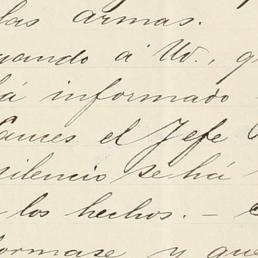 las armas.
gando á Ud., q
á informado
Cauces el Jefe
silencio se há
los hechos. —
formase y que